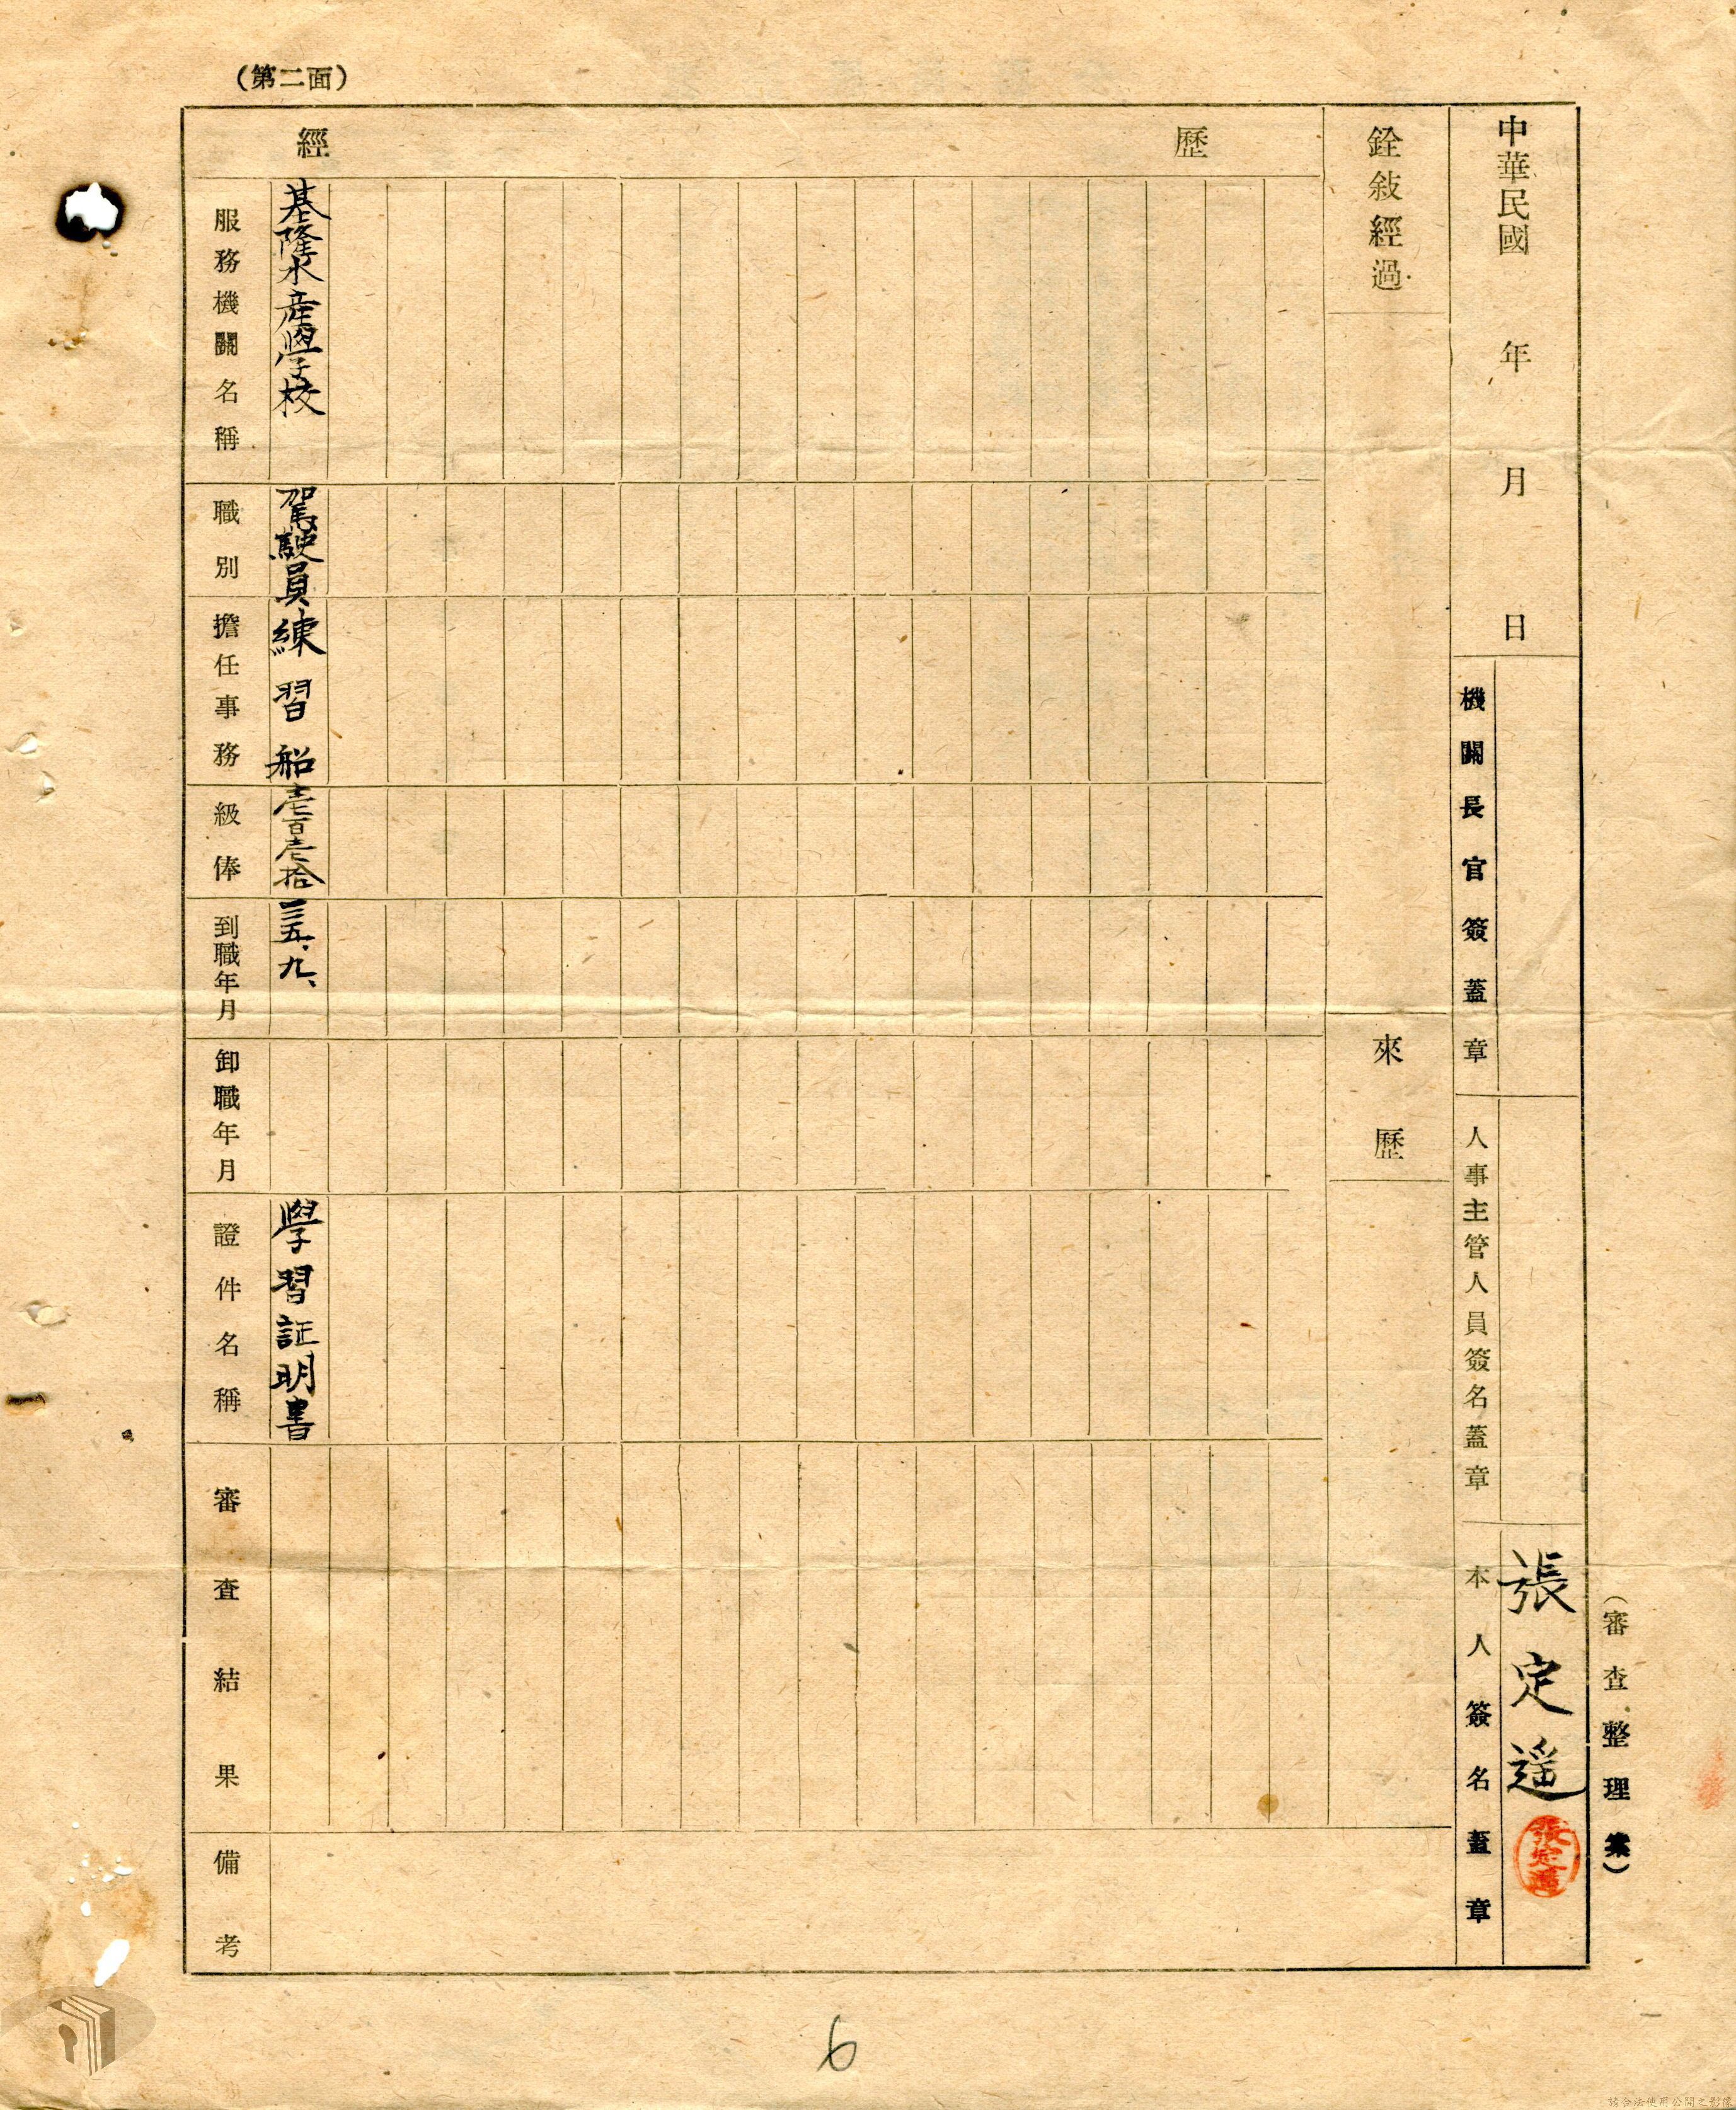 （第二面）
經歷
服務機關名稱
基隆水産學校
職別
駕駛員
擔任事務
練習船
級俸
壱百壱拾
到職年月
三五、九、
卸職年月
證件名稱
學習証明書
審查結果
備考
銓敍經過
來歷
中華民國 年 月 日
機關長官簽蓋章
人事主管人員簽名蓋章
本人簽名蓋章
張定遥
（審查整理案）
6
請合法使用公開之影像